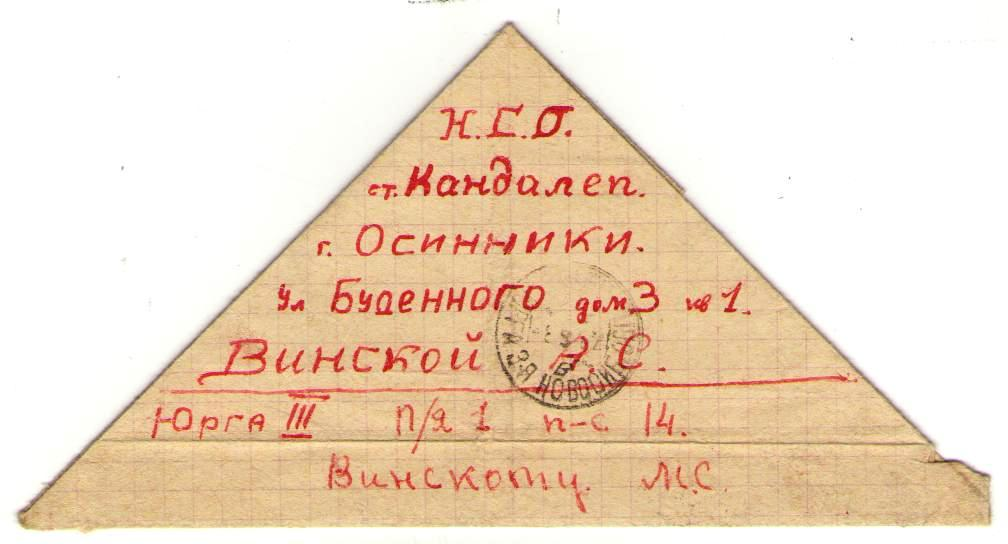 Н.С.О.
ст. Кандалеп.
г. Осинники.
ул Буденного дом. 3 кв 1.
Винской А. С.
Юрга III П/Я 1 п-с 14.
Винскому. М.С.